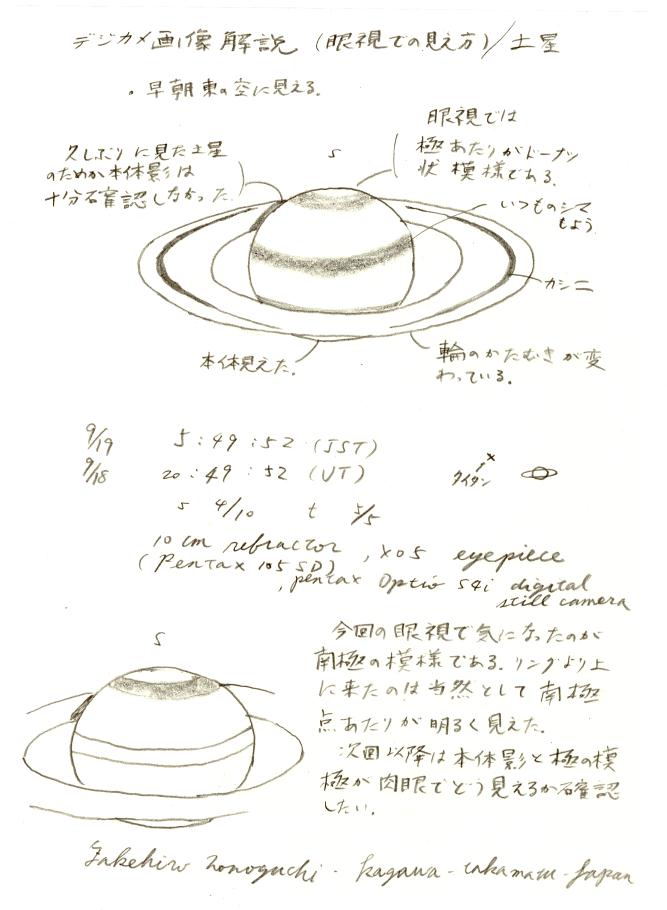 デジカメ画像解説 (眼視での見え方)/土星
。早朝東の空に見える。
久しぶりに見た土星
のためか本体影は
十分石確認しなかった.
S
眼視では
極あたりがドーナツ
状模様である.
いつものシマ
もよう.
カシニ
本体見えた.
輪のかたむきが変
わっている.
9/19 5:49:52 (JST)
9/18 20:49:52 (UT)
タイタン
S 4/10 t 5/5
10 cm refractor , XO5 eyepiece
(Pentax 105 SD)
, pentax Optio S4i digital
still camera
S
今回の眼視で気になったのが
南極の模様である. リングより上
に来たのは当然として南極
点あたりが明るく見えた.
次回以降は本体影と極の模
極が肉眼でどう見えるか確認
したい.
Takehiro Nonoguchi - Kagawa - takamatu - Japan